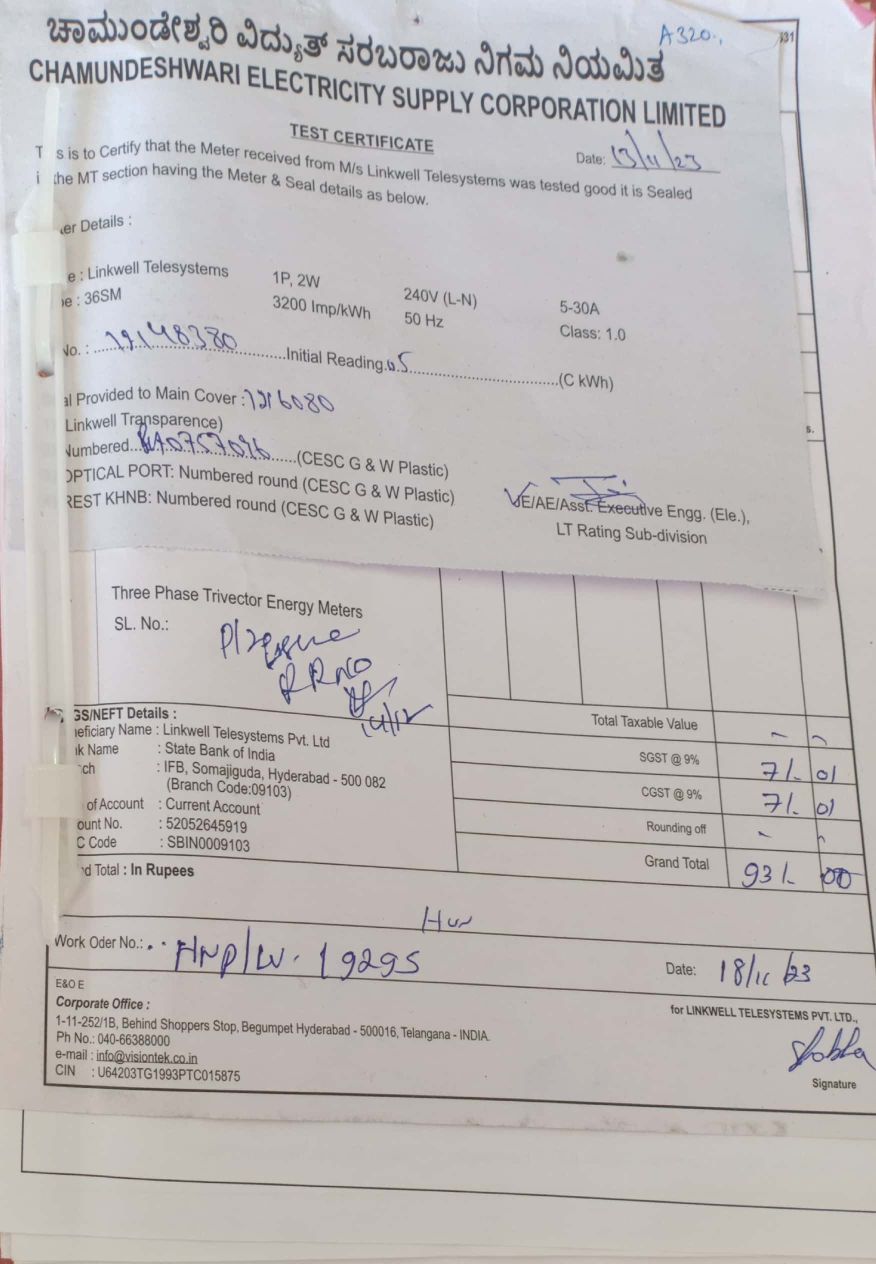 A320.,
ಚಾಮುಂಡೇಶ್ವರಿ ವಿದ್ಯುತ್ ಸರಬರಾಜು ನಿಗಮ ನಿಯಮಿತ
CHAMUNDESHWARI ELECTRICITY SUPPLY CORPORATION LIMITED
TEST CERTIFICATE
Date: 13/11/23
T s is to Certify that the Meter received from M/s Linkwell Telesystems was tested good it is Sealed
i the MT section having the Meter & Seal details as below.
er Details :
e : Linkwell Telesystems 1P, 2W 240V (L-N) 5-30A
e : 36SM 3200 Imp/kWh 50 Hz Class: 1.0
No. : 19148380 Initial Reading. 05 (C kWh)
al Provided to Main Cover :
Linkwell Transparence)
Numbered... (CESC G & W Plastic)
OPTICAL PORT: Numbered round (CESC G & W Plastic)
REST KHNB: Numbered round (CESC G & W Plastic)
JE/AE/Asst. Executive Engg. (Ele.),
LT Rating Sub-division
s.
Three Phase Trivector Energy Meters
SL. No.:
RRNO
GS/NEFT Details :
eficiary Name : Linkwell Telesystems Pvt. Ltd
k Name : State Bank of India
ch : IFB, Somajiguda, Hyderabad - 500 082
(Branch Code:09103)
of Account : Current Account
ount No. : 52052645919
C Code : SBIN0009103
Total Taxable Value
SGST @ 9% 71- 01
CGST @ 9% 71- 01
Rounding off
Grand Total 931- 00
d Total : In Rupees
Work Oder No.: HNP/LV. 19295
Date: 18/11/23
E&O E
Corporate Office :
1-11-252/1B, Behind Shoppers Stop, Begumpet Hyderabad - 500016, Telangana - INDIA.
Ph No.: 040-66388000
e-mail : info@visiontek.co.in
CIN : U64203TG1993PTC015875
for LINKWELL TELESYSTEMS PVT. LTD.,
Shobha
Signature